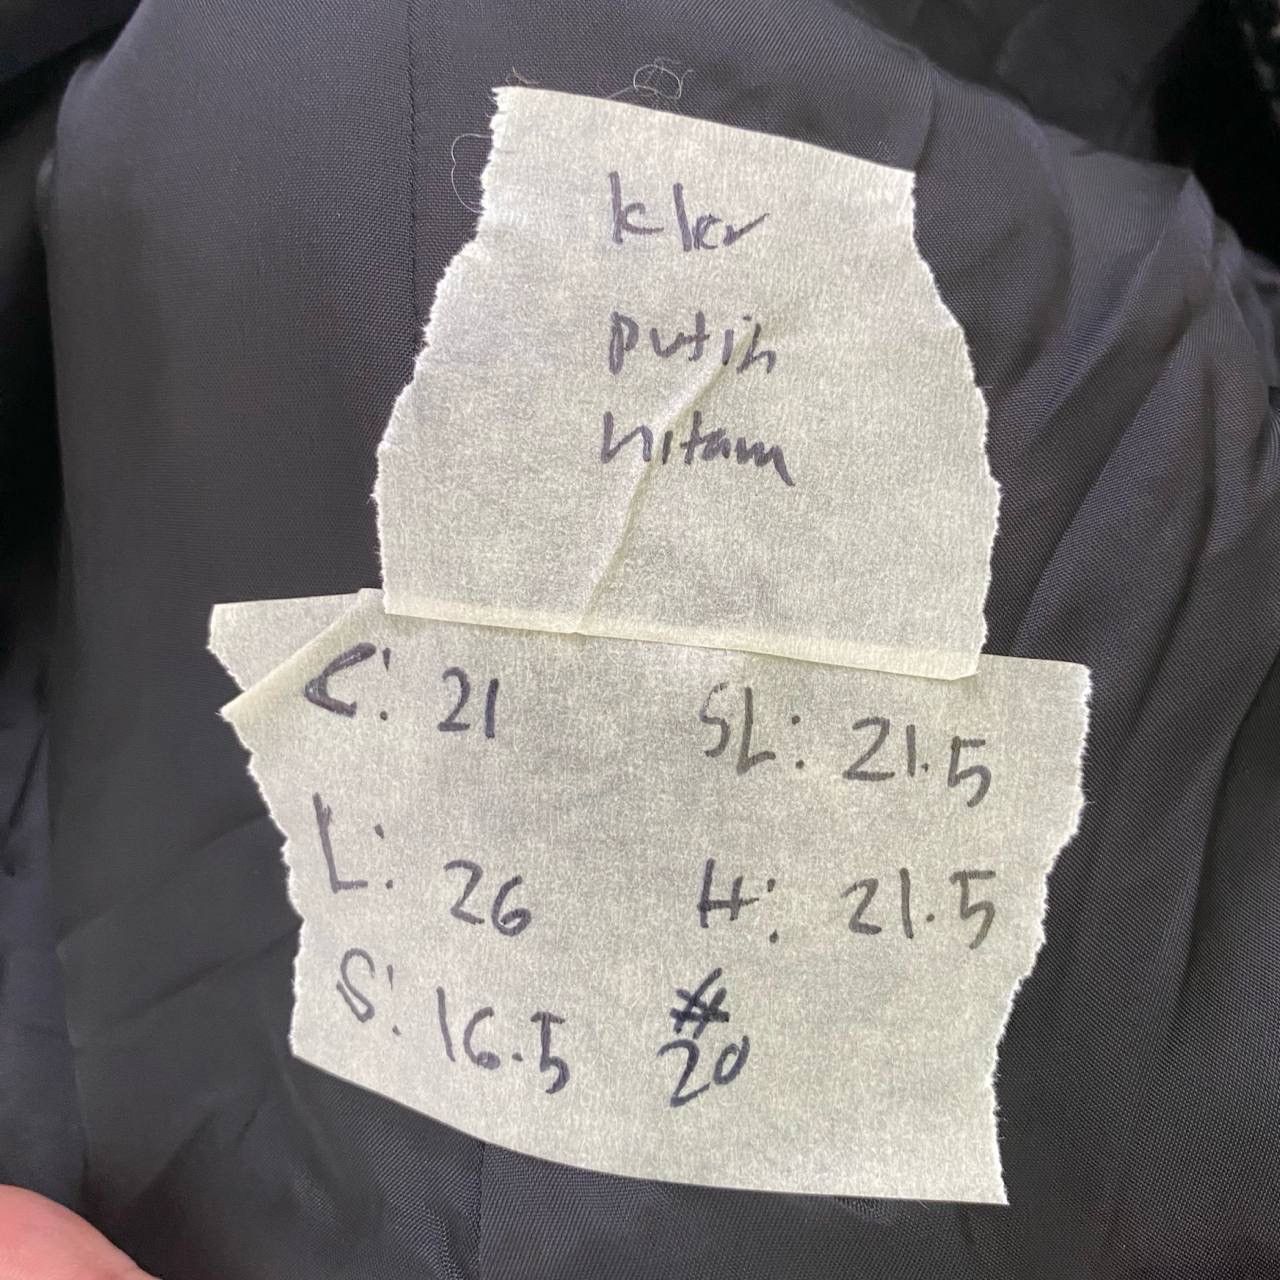 kler
putih
hitam
C: 21 SL: 21.5
L: 26 H: 21.5
S: 16.5 #
20